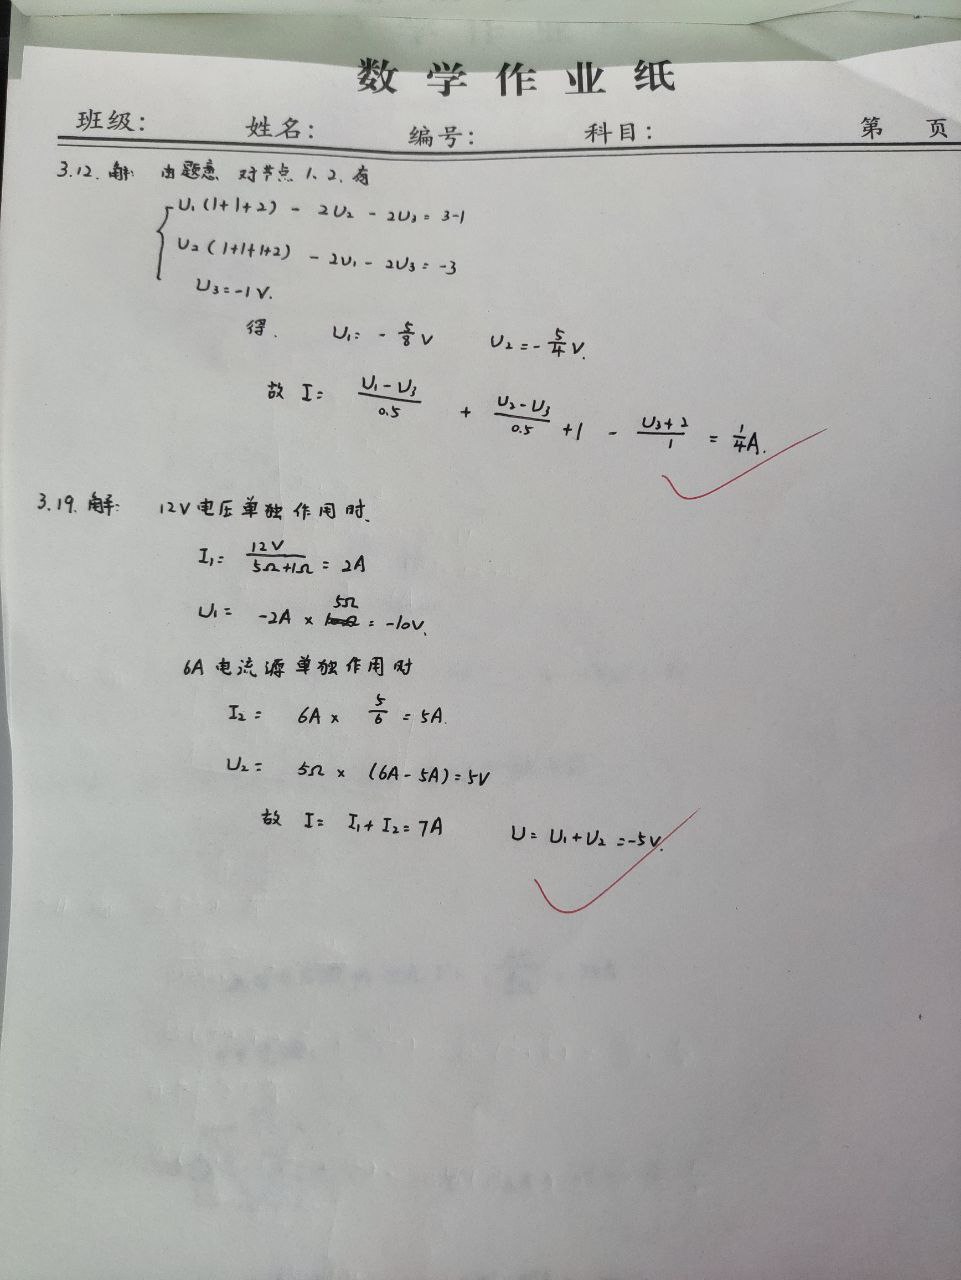 数学作业纸
班级: 姓名: 编号: 科目: 第 页
3.12. 解: 由题意, 对节点 1、2, 有
U₁(1+1+2) - 2U₂ - 2U₃ = 3-1
U₂(1+1+1+2) - 2U₁ - 2U₃ = -3
U₃ = -1V.
得. U₁ = - 5/8 V U₂ = - 5/4 V.
故 I = (U₁-U₃)/0.5 + (U₂-U₃)/0.5 + 1 - (U₃+2)/1 = 1/4 A.
3.19. 解: 12V 电压单独作用时.
I₁ = 12V/(5Ω+1Ω) = 2A
U₁ = -2A × 5Ω = -10V.
6A 电流源单独作用时
I₂ = 6A × 5/6 = 5A.
U₂ = 5Ω × (6A - 5A) = 5V
故 I = I₁ + I₂ = 7A U = U₁ + U₂ = -5V.